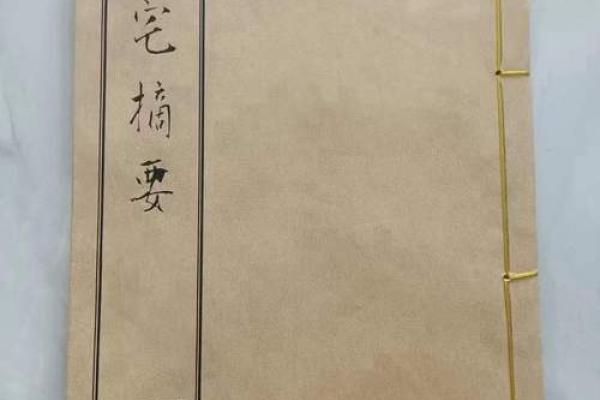 宅摘要